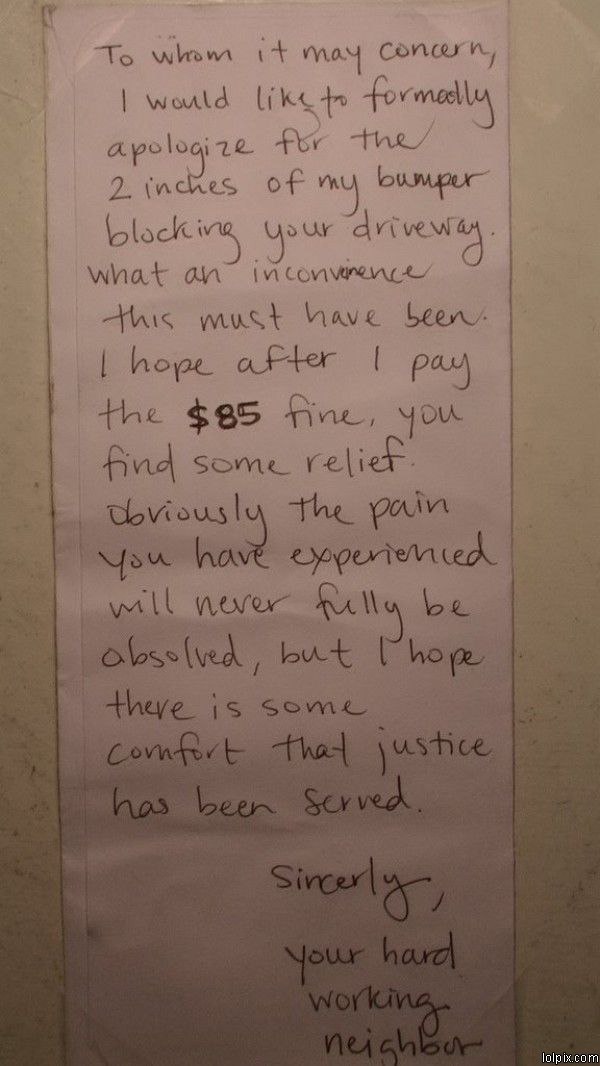 To whom it may concern,
I would like to formally
apologize for the
2 inches of my bumper
blocking your driveway.
what an inconvinence
this must have been.
I hope after I pay
the $85 fine, you
find some relief.
Obviously the pain
you have experienced
will never fully be
absolved, but I hope
there is some
comfort that justice
has been served.
Sincerly,
your hard
working
neighbor
lolpix.com